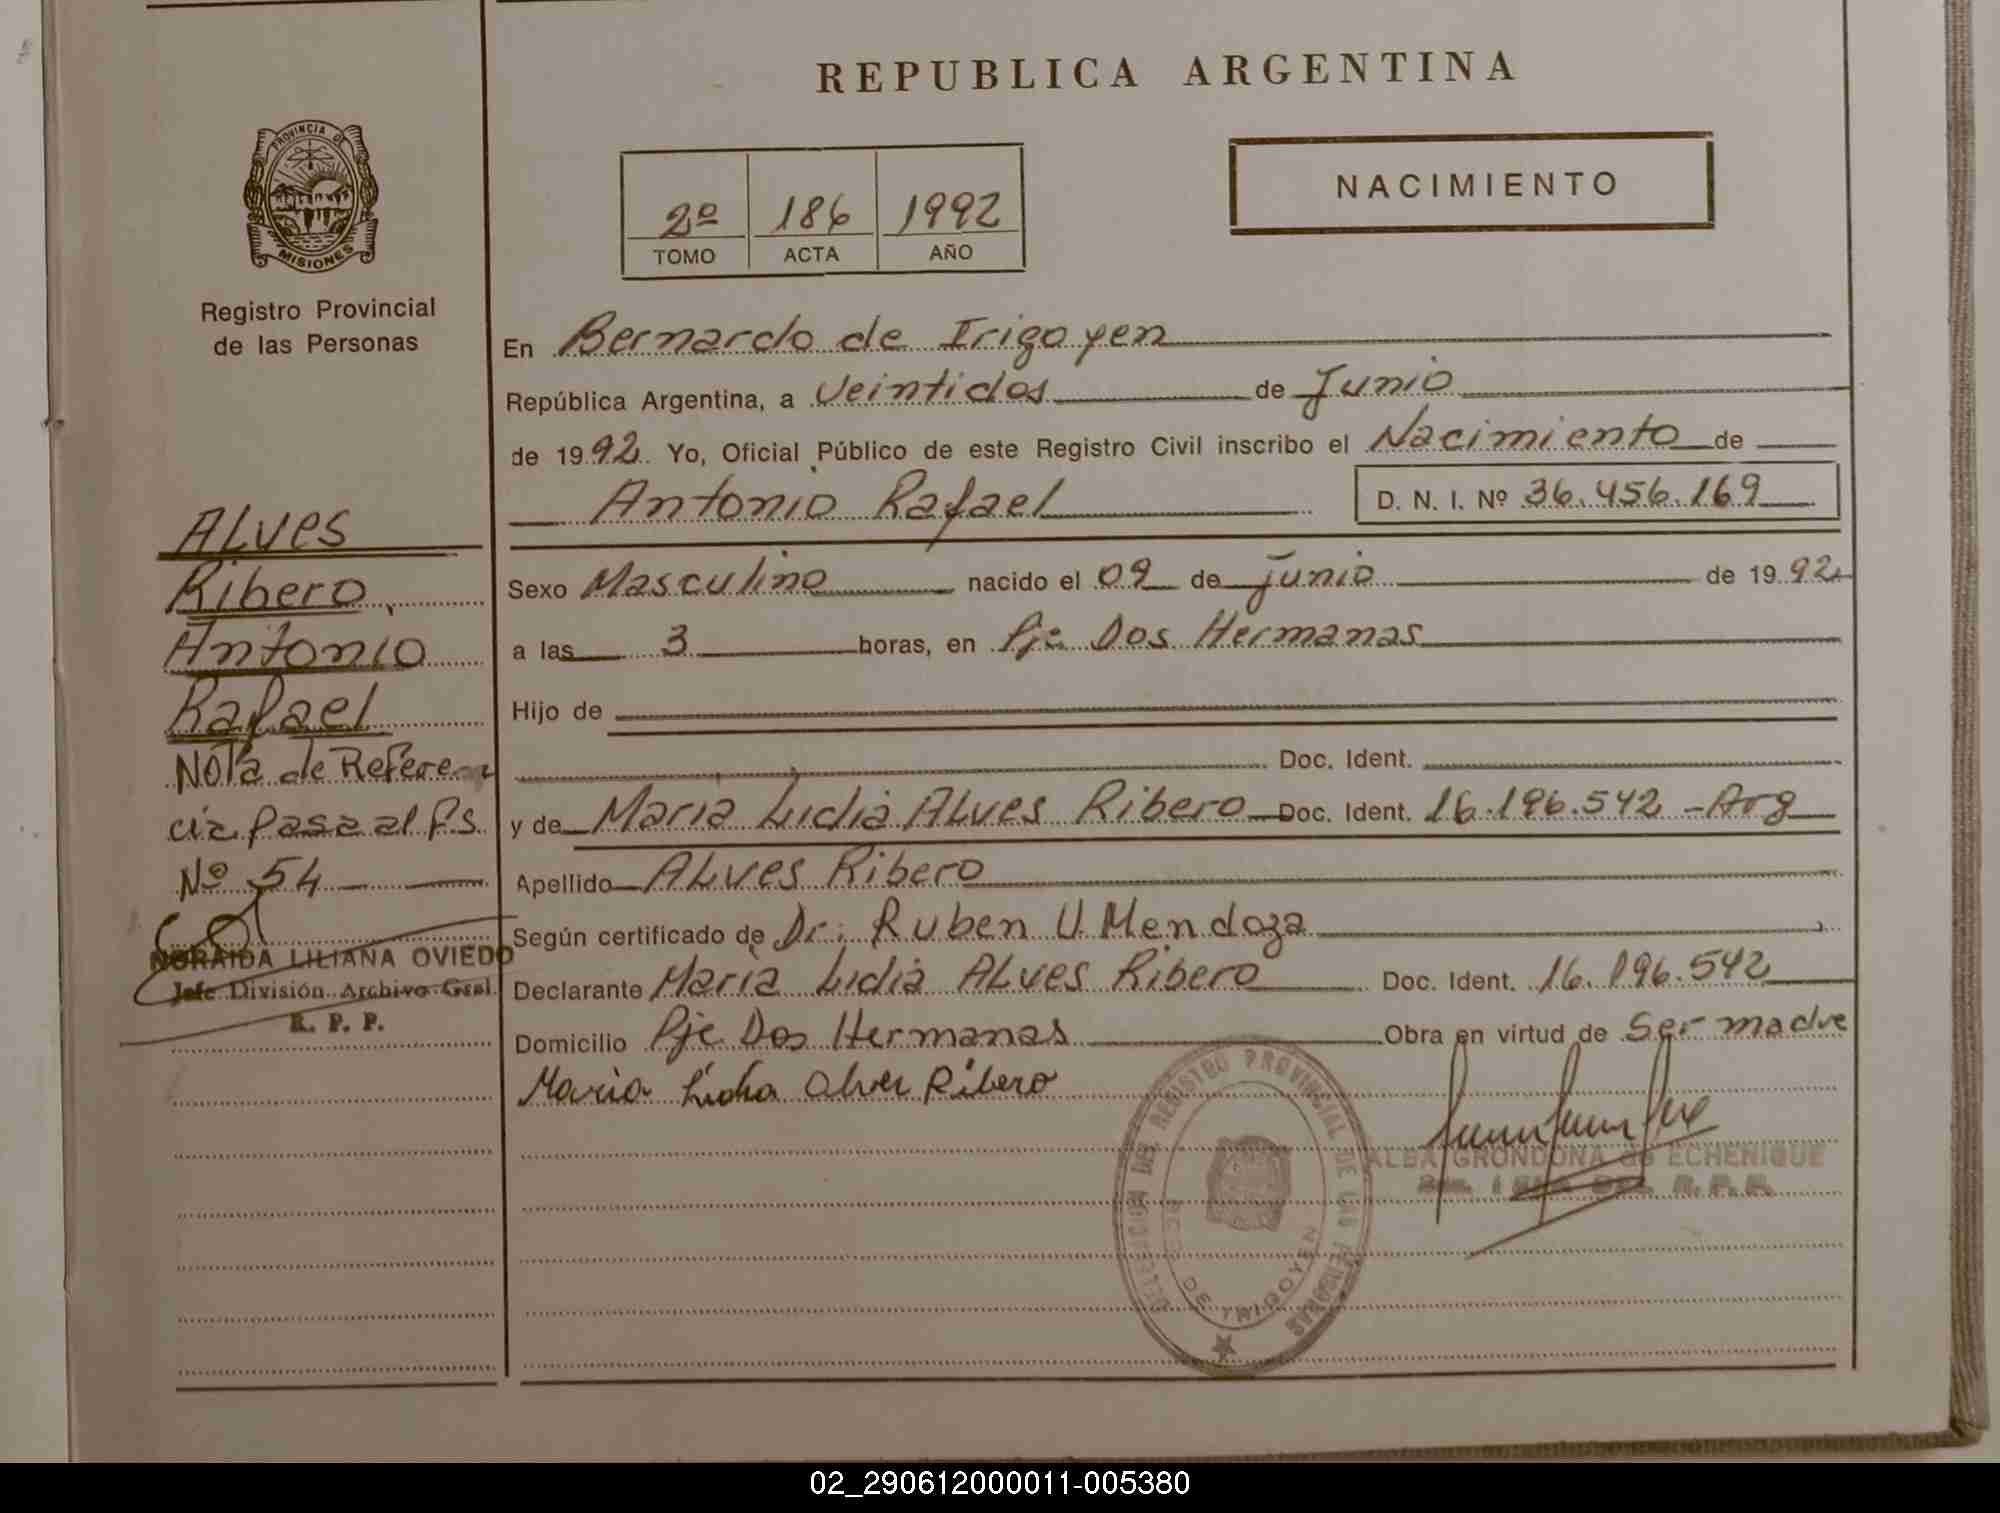 REPUBLICA ARGENTINA
PROVINCIA DE
MISIONES
Registro Provincial
de las Personas
2º 186 1992
TOMO ACTA AÑO
NACIMIENTO
En Bernardo de Irigoyen
República Argentina, a Veintidos de Junio
de 1992. Yo, Oficial Público de este Registro Civil inscribo el Nacimiento de
Antonio Rafael D. N. I. Nº 36.456.169
Sexo Masculino nacido el 09 de junio de 1992
a las 3 horas, en Pje Dos Hermanas
Hijo de
Doc. Ident.
y de Maria Lidia ALves Ribero Doc. Ident. 16.196.542 - Arg
Apellido ALves Ribero
Según certificado de Dr. Ruben U. Mendoza
Declarante Maria Lidia ALves Ribero Doc. Ident. 16.196.542
Domicilio Pje Dos Hermanas Obra en virtud de Ser madre
Maria Lidia Alves Ribero
ALves
Ribero,
Antonio
Rafael
Nota de Referen
cia pasa al Fs.
Nº 54
NORAIDA LILIANA OVIEDO
Jefe División Archivo Gral.
R. P. P.
DELEGACION DEL REGISTRO PROVINCIAL DE LAS PERSONAS
DE IRIGOYEN
ALBA GRONDONA de ECHENIQUE
R. P. P.
02_290612000011-005380